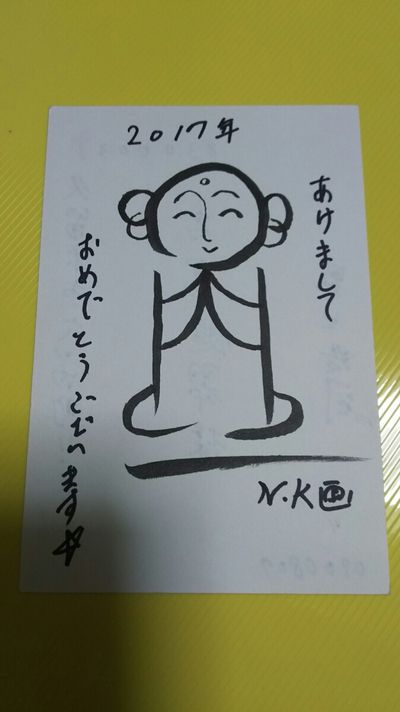 2017年
あけまして
おめでとうございます
N.K画